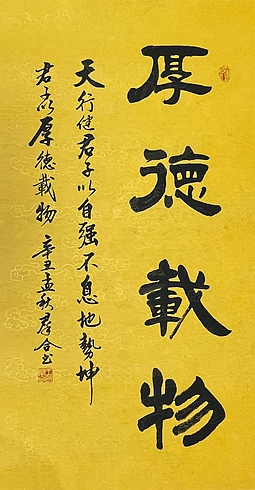 厚德載物
天行健君子以自强不息地勢坤
君子以厚德載物 辛丑孟秋